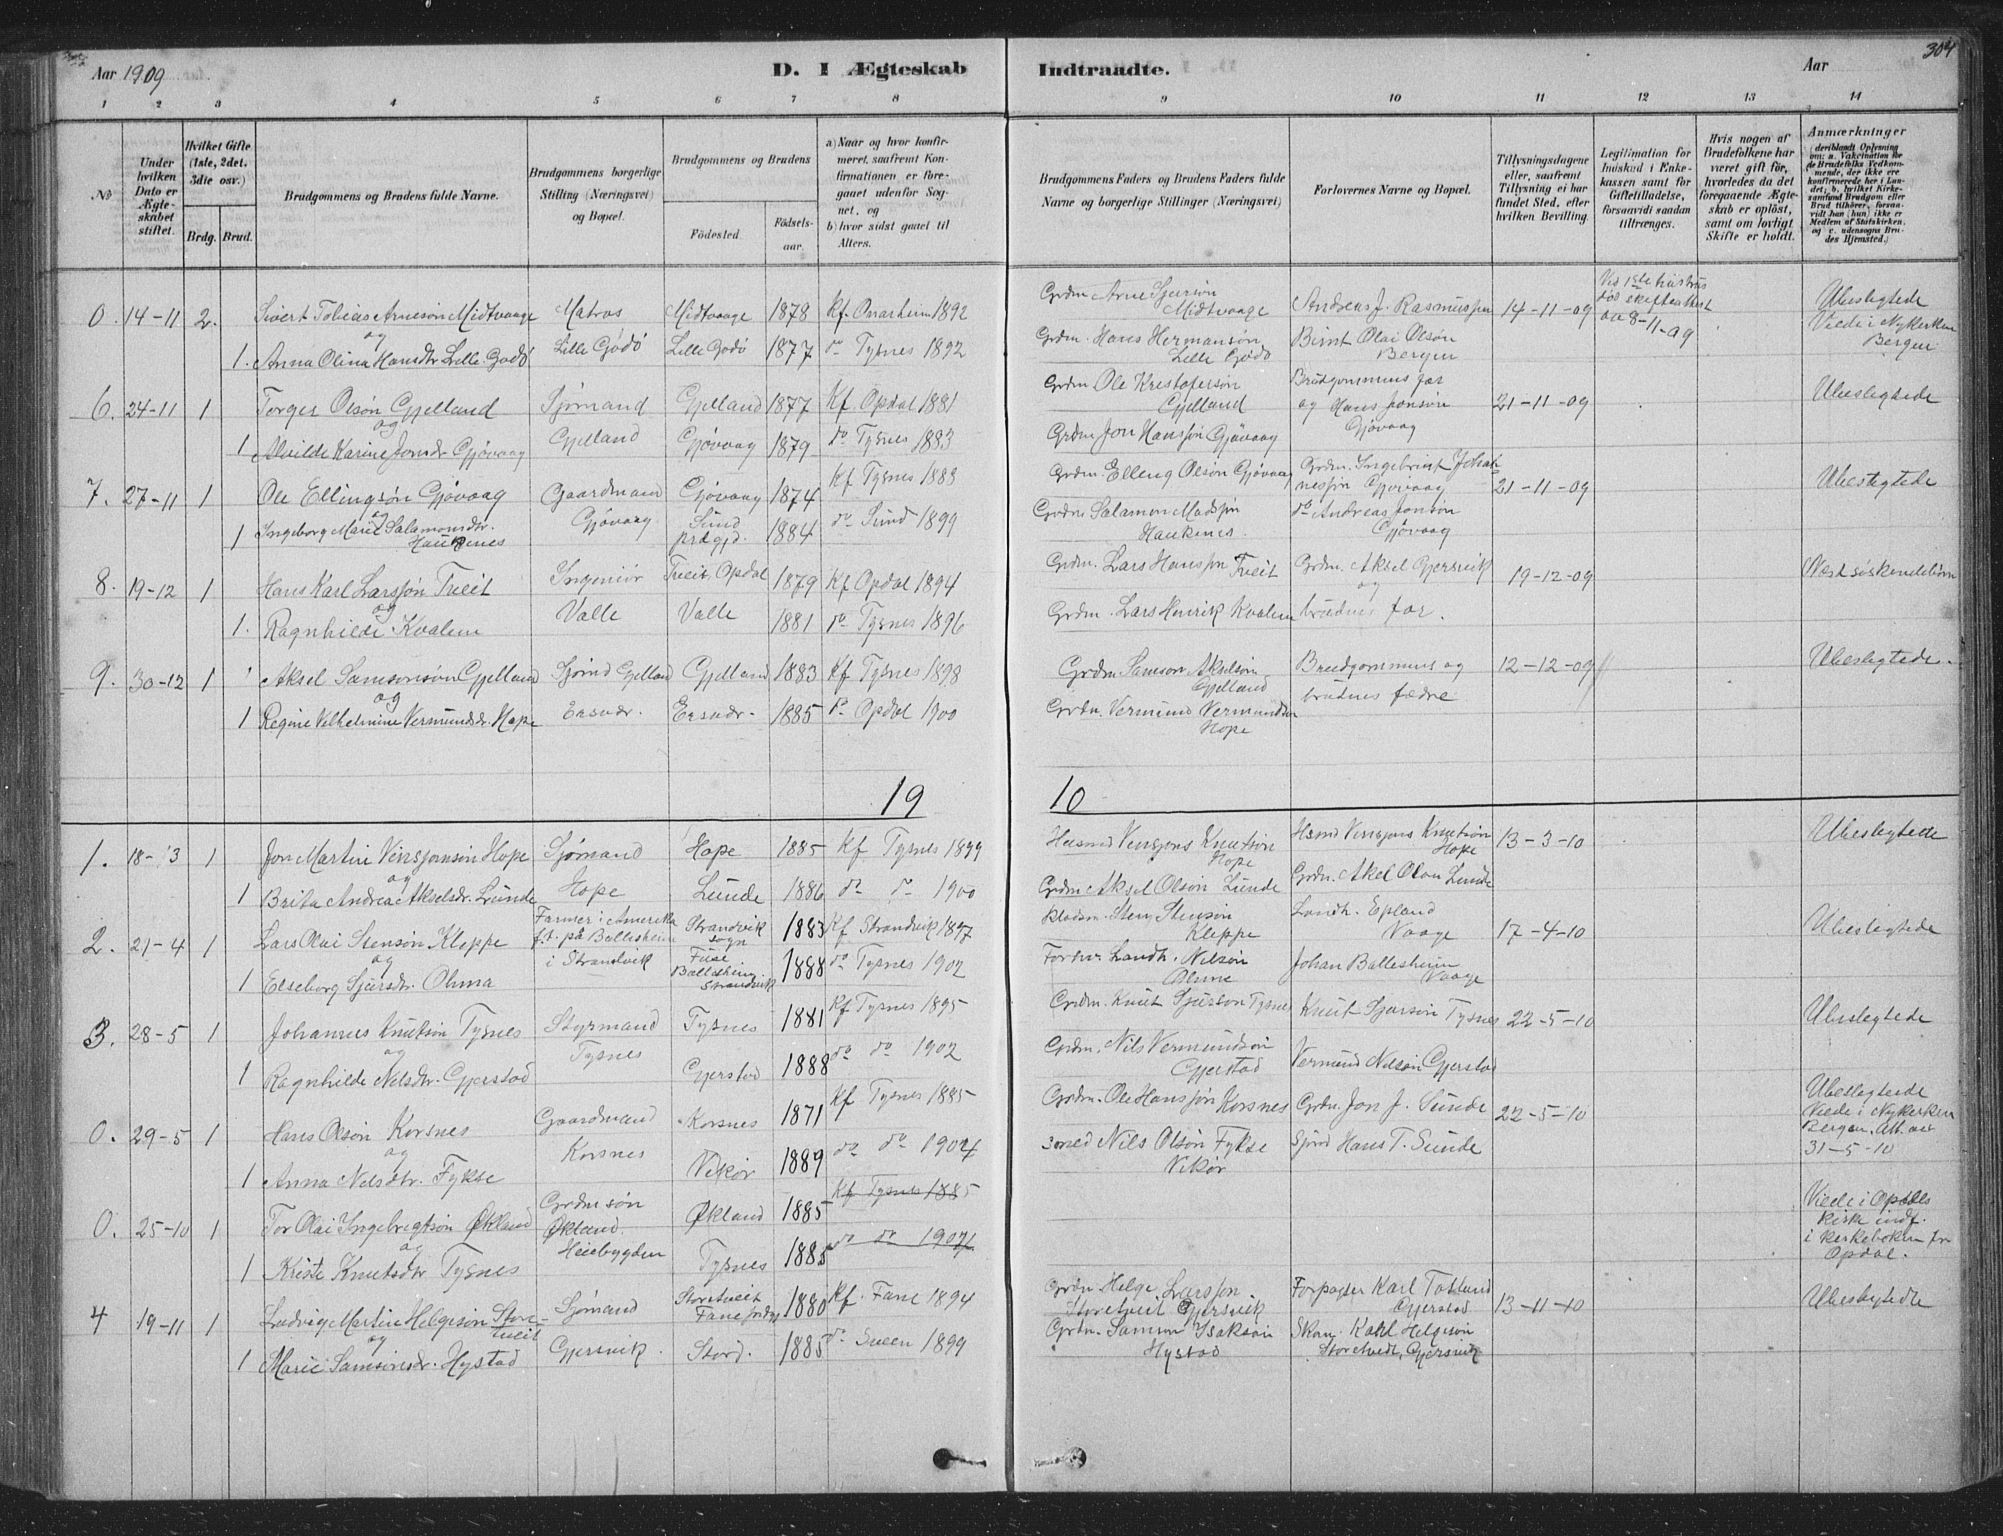 304
Aar 1909
D. I Ægteskab Indtraadte.
Aar
1 2 3 4 5 6 7 8 9 10 11 12 13 14
No
Under hvilken Dato er Ægteskabet stiftet.
Hvilket Gifte (1ste, 2det, 3die osv.)
Brdg. Brud.
Brudgommens og Brudens fulde Navne.
Brudgommens borgerlige Stilling (Næringsvei) og Bopæl.
Brudgommens og Brudens
Fødested. Fødselsaar.
a) Naar og hvor konfirmeret, saafremt Konfirmationen er foregaaet udenfor Sognet, og
b) hvor sidst gaaet til Alters.
Brudgommens Faders og Brudens Faders fulde Navne og borgerlige Stillinger (Næringsvei)
Forlovernes Navne og Bopæl.
Tillysningsdagene eller, saafremt Tillysning ei har fundet Sted, efter hvilken Bevilling.
Legitimation for Indskud i Enkekassen samt for Giftetilladelse, forsaavidt saadan tiltrænges.
Hvis nogen af Brudefolkene har været gift før, hvorledes da det foregaaende Ægteskab er opløst, samt om lovligt Skifte er holdt.
Anmærkninger
0. 14-11 2. Sivert Tobias Arnesøn Midtvaage Matros Midtvaage 1878 Kf. Onarheim 1892 Grdm Arne Sjursøn Midtvaage Andreas J. Rasmussen 14-11-09 Ubeslegtede
og
1. Anna Olina Hansdtr. Lille Godø Lille Godø Lille Godø 1877 do Tysnes 1892 Grdm. Hans Hermansøn Lille Godø Bernt Olai Olsøn Bergen 8-11-09 Viede i Nykerken Bergen
6. 24-11 1 Torger Olsøn Gjelland Sjømand Gjelland 1877 Kf Opdal 1881 Grdm Ole Kristofersøn Gjelland Brudgommens far og Hans Jonsøn Gjøvaag 21-11-09 Ubeslegtede
og
1 Alvilde Karine Jonsdr Gjøvaag Gjelland Gjøvaag 1879 do Tysnes 1883 Grdm Jon Hanssøn Gjøvaag
7. 27-11 1 Ole Ellingsøn Gjøvaag Gaardmand Gjøvaag 1874 Kf Tysnes 1888 Grdm. Elleng Olsøn Gjøvaag Grdm. Ingebrigt Johannessøn Gjøvaag 21-11-09 Ubeslegtede
og
1 Ingeborg Marie Salamonsdtr. Haukenes Gjøvaag Sund prægjd. 1884 do Sund 1899 Grdm Salamon Madssøn Haukenes. do Andreas Jonsøn Gjøvaag
8. 19-12 1 Hans Karl Larssøn Treit Ingeniør Treit, Opdal 1879 Kf Opdal 1894 Grdm. Lars Hanssøn Treit Grdm. Aksel Gjersvik 19-12-09 Næstsøskendebørn
og
1. Ragnhilde Kvalem Valle Valle 1881 do Tysnes 1896 Grdm. Lars Henrik Kvalem og brudens far.
9. 30-12 1 Aksel Samsonsøn Gjelland Sjømd Gjelland Gjelland 1883 Kf Tysnes 1898 Grdm Samson Akselsøn Gjelland Brudgommens og brudens fædre 12-12-09 Ubeslegtede.
og
1 Regine Vilhelmine Vermundsdr. Hope Ersvær. Ersvær. 1885 do Opdal 1900 Grdm. Vermund Vermundsøn Hope
19 10
1. 18-3 1 Jon Martin Vinsjansøn Hope Sjømand Hope 1885 Kf Tysnes 1899 Husmd Vensjans Knutsøn Hope Hsmd Vensjans Knutsøn Hope 13-3-10 Ubeslegtede
og
1 Brita Andrea Akselsdr. Lunde Hope Lunde 1886 do do 1900 Grdm Aksel Olsøn Lunde Grdm. Aksel Olsøn Lunde
2. 21-4 1 Lars Olai Stensøn Kleppe Farmer i Amerika f.t. på Ballesheim i Strandvik Strandvik sogn Fuse 1883 Kf Strandvik 1897 Sten Stensøn Kleppe Landh. Epland Vaage 17-4-10 Ubeslegtede
og
1 Elseborg Sjursdr. Ohma Ballesheim Strandvik 1888 do Tysnes 1902 Forhv. Landh. Nilsøn Johan Ballesheim Vaage
3. 28-5 1 Johannes Knutsøn Tysnes Styrmand Tysnes 1881 Kf Tysnes 1895 Grdm. Knut Sjursøn Tysnes Knut Sjursøn Tysnes 22-5-10 Ubeslegtede
og
1 Ragnhilde Nilsdtr. Gjerstad Tysnes Gjerstad 1888 do do 1902 Grdm. Nils Vermundsøn Gjerstad Vermund Nilsøn Gjerstad
0. 29-5 1 Hans Olsøn Korsnes Gaardmand Korsnes 1871 Kf Tysnes 1885 Grdm. Ole Hanssøn Korsnes Grdm. Jon J. Sunde 22-5-10 Ubeslegtede Viede i Nykerken Bergen. Att. av 31-5-10
og
1 Anna Nilsdtr. Fykse Korsnes Vikør 1889 do do 1904 Nils Olsøn Fykse Vikør Sjømd Hans T. Sunde
0. 25-10 1 Tor Olai Ingebregtsøn Økland Grdmsøn Økland. Økland 1885 Kf Tysnes 1885 Viede i Opdals kirke indf. i kirkeboken for Opdal.
og
1 Kriste Knutsdtr Tysnes Heiebygden Tysnes 1885 do do 1904
4 19-11 1 Ludvig Martin Helgesøn Storetveit Sjømand Storetveit Fane prdgj 1880 Kf. Fane 1894 Grdm Helge Larssøn Storetveit Gjersvik Forpagter Karl Totland Gjerstad 13-11-10 Ubeslegtede
og
1 Marie Samsonsdr. Hystad Gjersvik. Stord. 1885 do Sveen 1899 Grdm. Samson Isaksøn Hystad Karl Helgesøn Storetvedt, Gjersvik